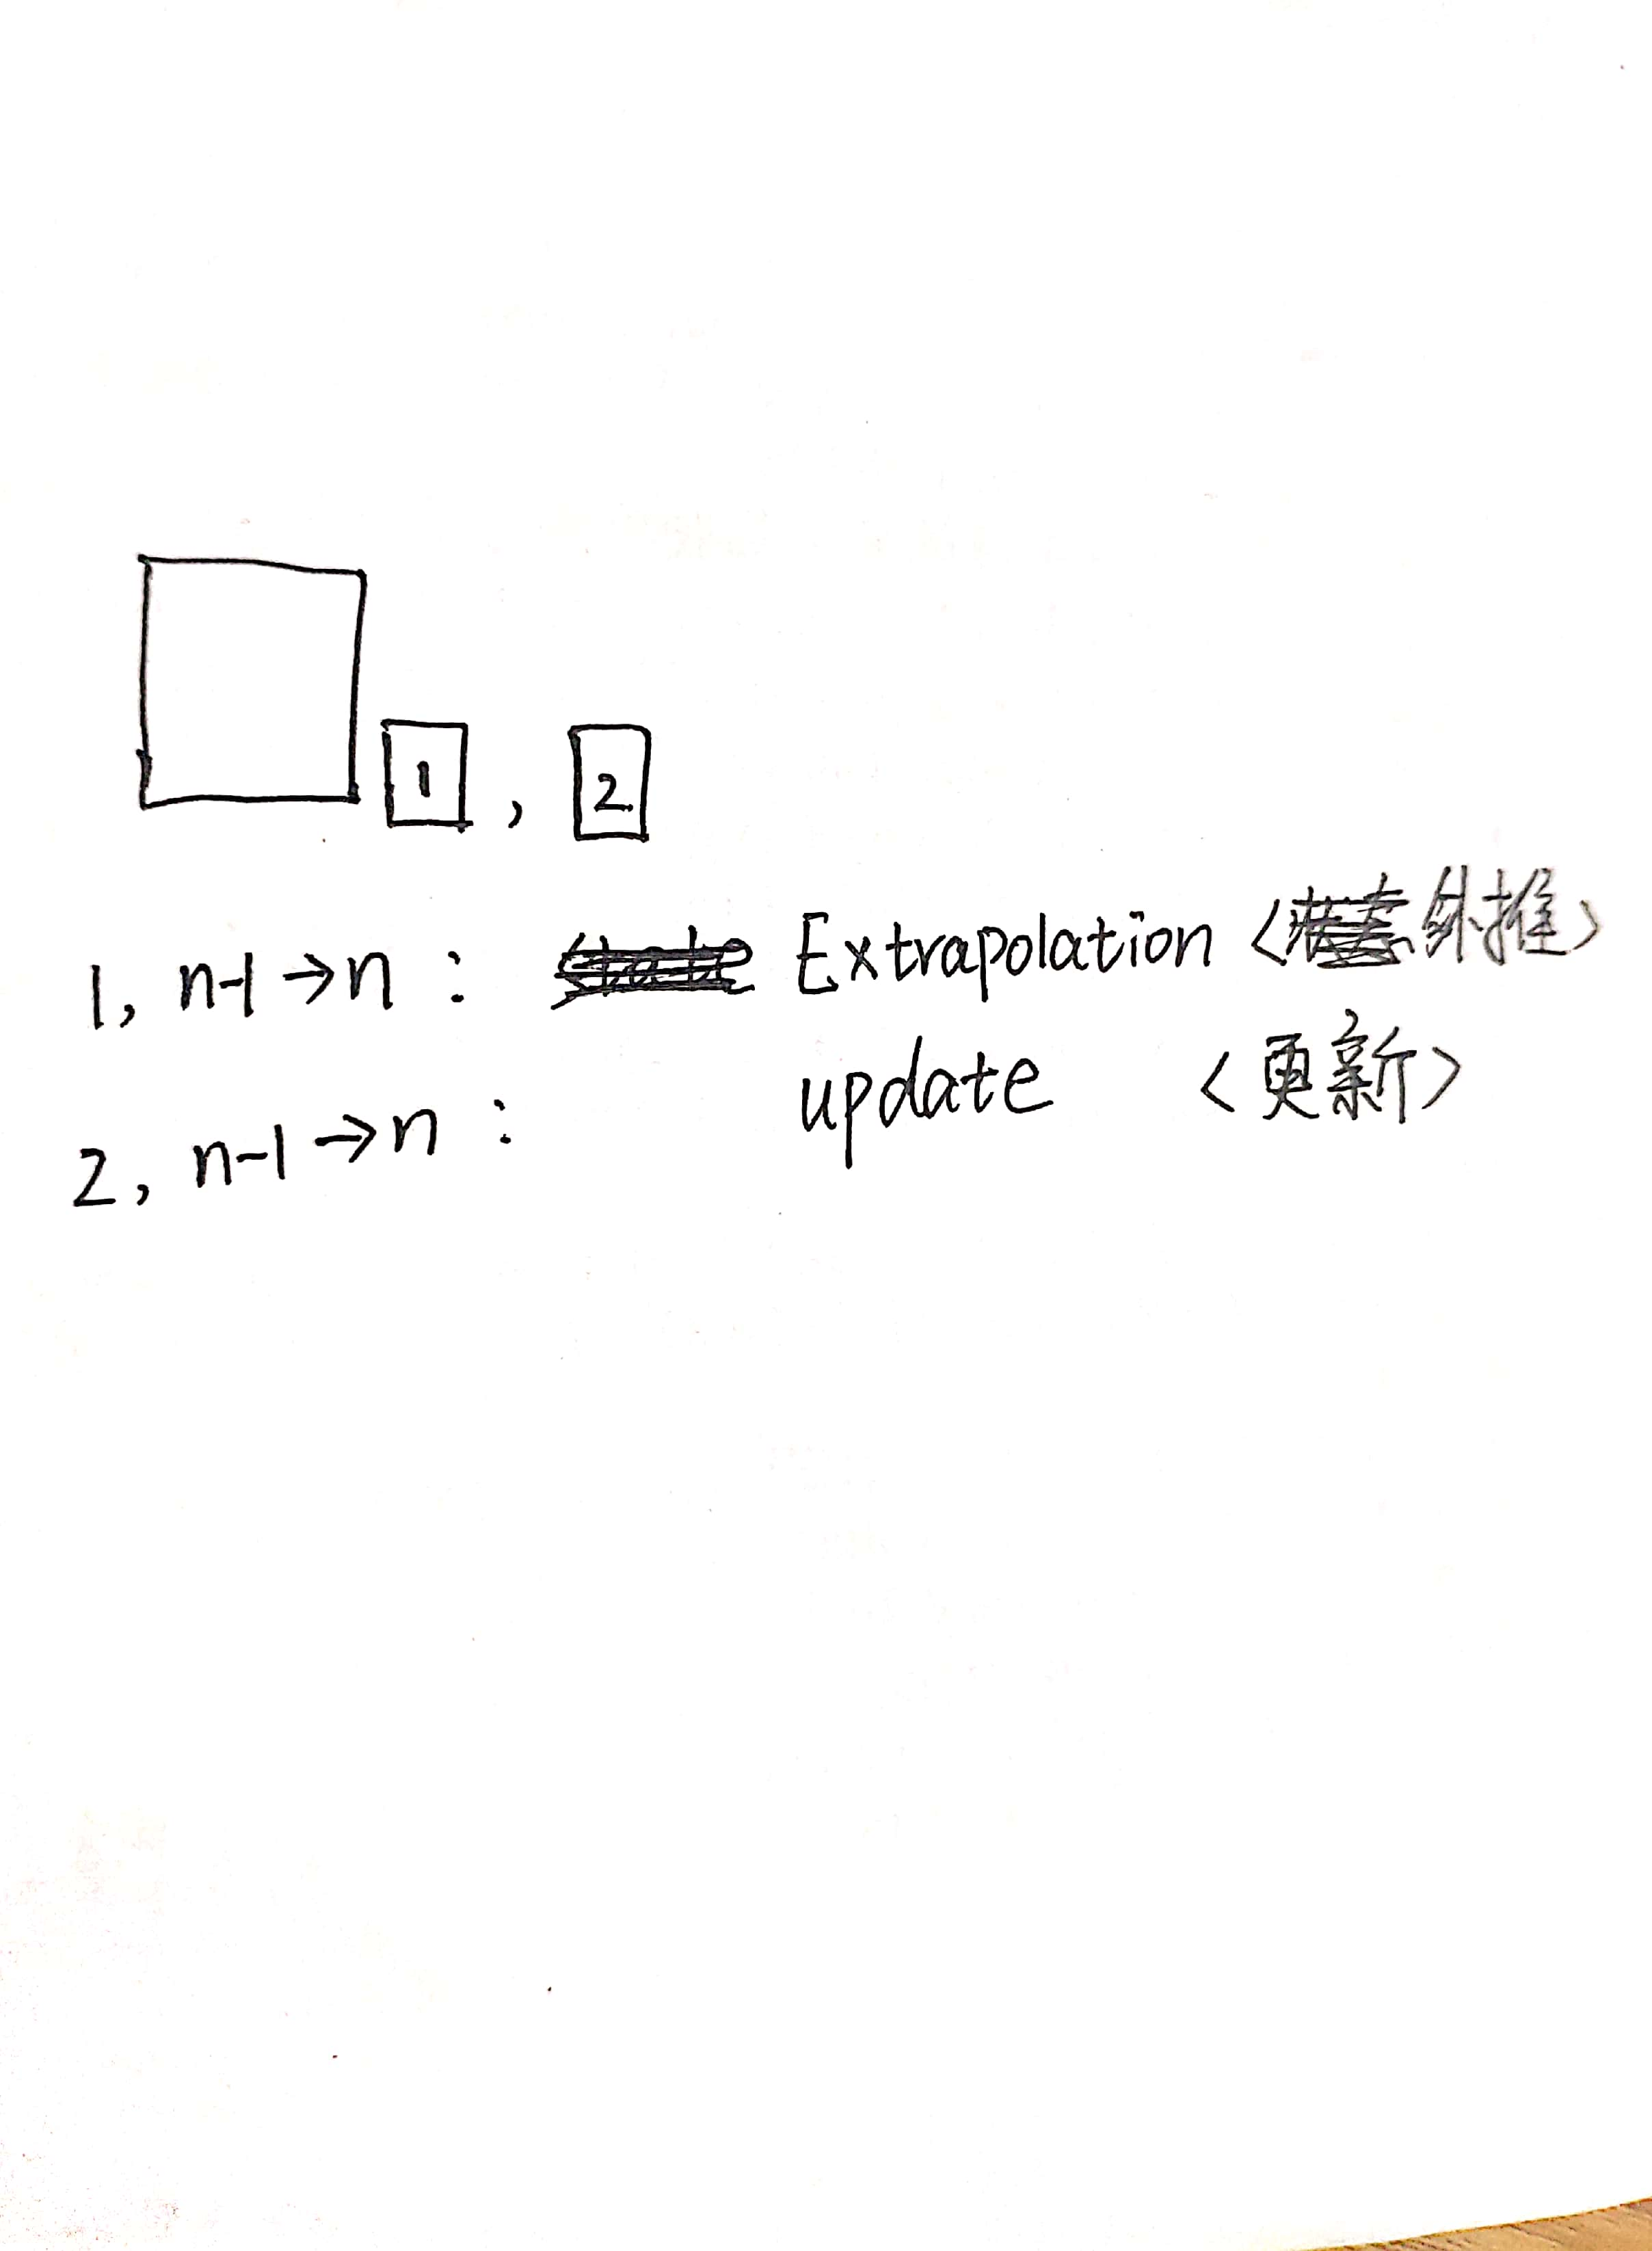 1 , 2
1, n-1→n : Extrapolation <外推>
2, n-1→n : update <更新>